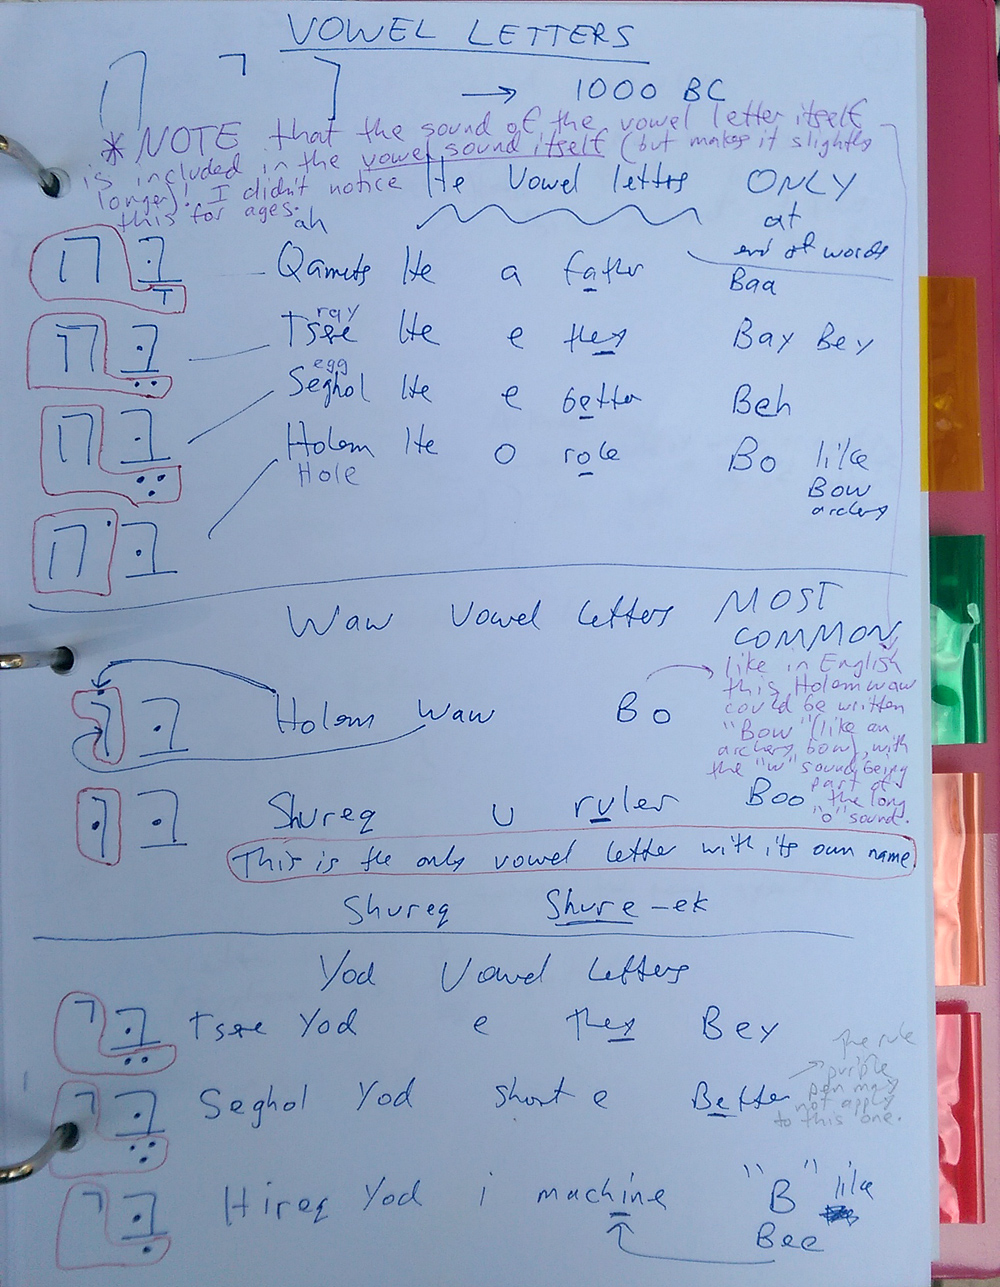 VOWEL LETTERS
ה ו י → 1000 BC
* NOTE that the sound of the vowel letter itself
is included in the vowel sound itself (but makes it slightly
longer)! I didn't notice
this for ages.
He Vowel letters ONLY
at
end of words
ah
בָּה Qamets He a father Baa
ray
בֵּה Tsere He e they Bay Bey
egg
בֶּה Seghol He e better Beh
בֹּה Holem He o role Bo like
Hole Bow
archery
Waw Vowel letters MOST
COMMON
בּוֹ Holem Waw Bo
like in English
this Holem waw
could be written
"Bow" (like an
archery bow), with
the "w" sound being
part of
the long
"o" sound.
בּוּ Shureq u ruler Boo
This is the only vowel letter with its own name
Shureq Shure-ek
Yod Vowel letters
בֵּי Tsere Yod e they Bey
בֶּי Seghol Yod short e Better
The rule
purple
pen may
not apply
to this one.
בִּי Hireq Yod i machine "B" like
Bee